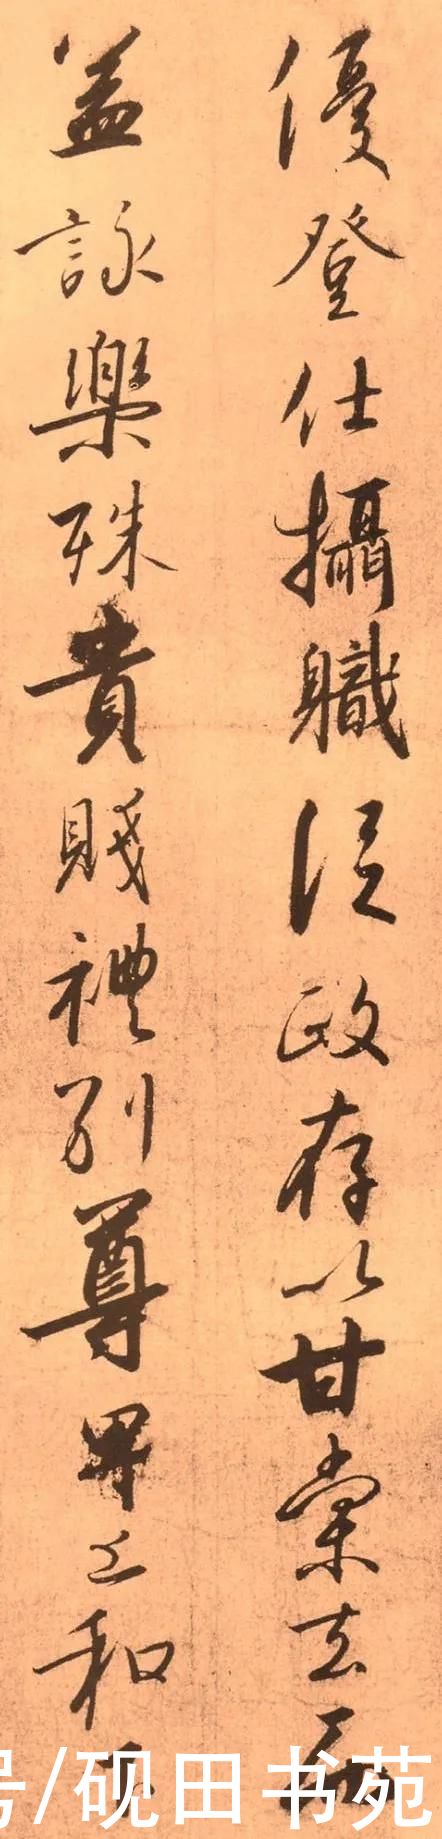 優登仕攝職從政存以甘棠去而
益詠樂殊貴賤禮別尊卑上和下
号/砚田书苑